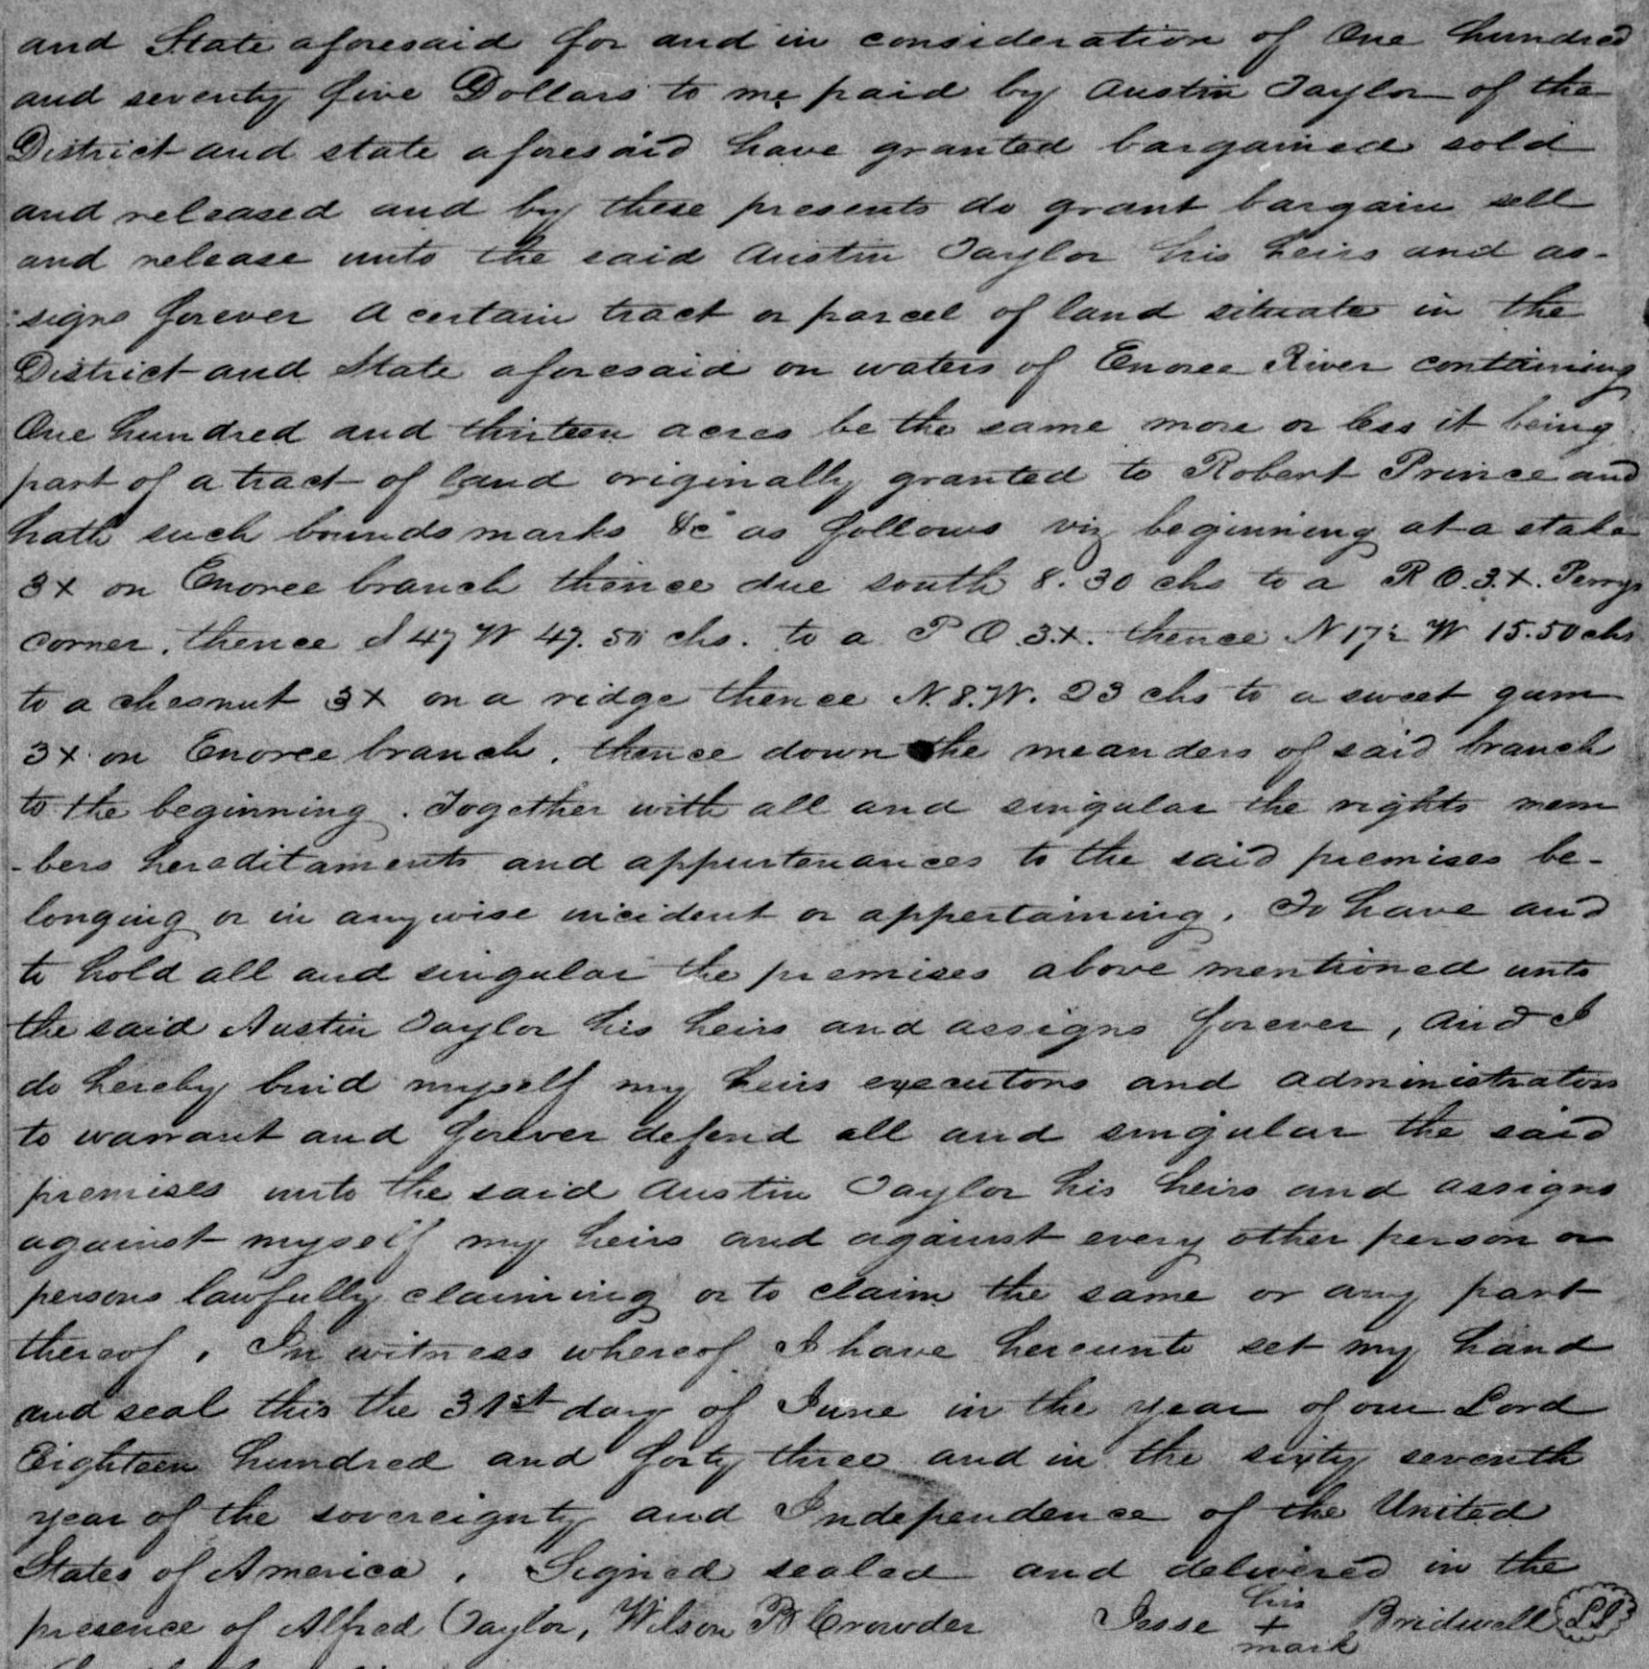 and State aforesaid for and in consideration of One hundred
and seventy five Dollars to me paid by Austin Taylor of the
District and state aforesaid have granted bargained sold
and released and by these presents do grant bargain sell
and release unto the said Austin Taylor his heirs and as-
signs forever A certain tract or parcel of land situate in the
District and State aforesaid on waters of Enoree River containing
One hundred and thirteen acres be the same more or less it being
part of a tract of land originally granted to Robert Prince and
hath such bounds marks &c as follows viz beginning at a stake
3x on Enoree branch thence due south 8.30 chs to a R O. 3.x. Perrys
corner, thence S 47 W 47.50 chs. to a P O 3.x. thence N 17½ W 15.50 chs
to a chesnut 3x on a ridge thence N. 8. W. 23 chs to a sweet gum
3x on Enoree branch. thence down the meanders of said branch
to the beginning. Together with all and singular the rights mem
-bers hereditaments and appurtenances to the said premises be-
longing or in anywise incident or appertaining. To have and
to hold all and singular the premises above mentioned unto
the said Austin Taylor his heirs and assigns forever, And I
do hereby bind myself my heirs executors and administrators
to warrant and forever defend all and singular the said
premises unto the said Austin Taylor his heirs and assigns
against myself my heirs and against every other person or
persons lawfully claiming or to claim the same or any part
thereof. In witness whereof I have hereunto set my hand
and seal this the 31st day of June in the year of our Lord
Eighteen hundred and forty three and in the sixty seventh
year of the sovereignty and Independence of the United
States of America. Signed sealed and delivered in the
his
presence of Alfred Taylor, Wilson B Crowder Jesse + Bridwell LS
mark